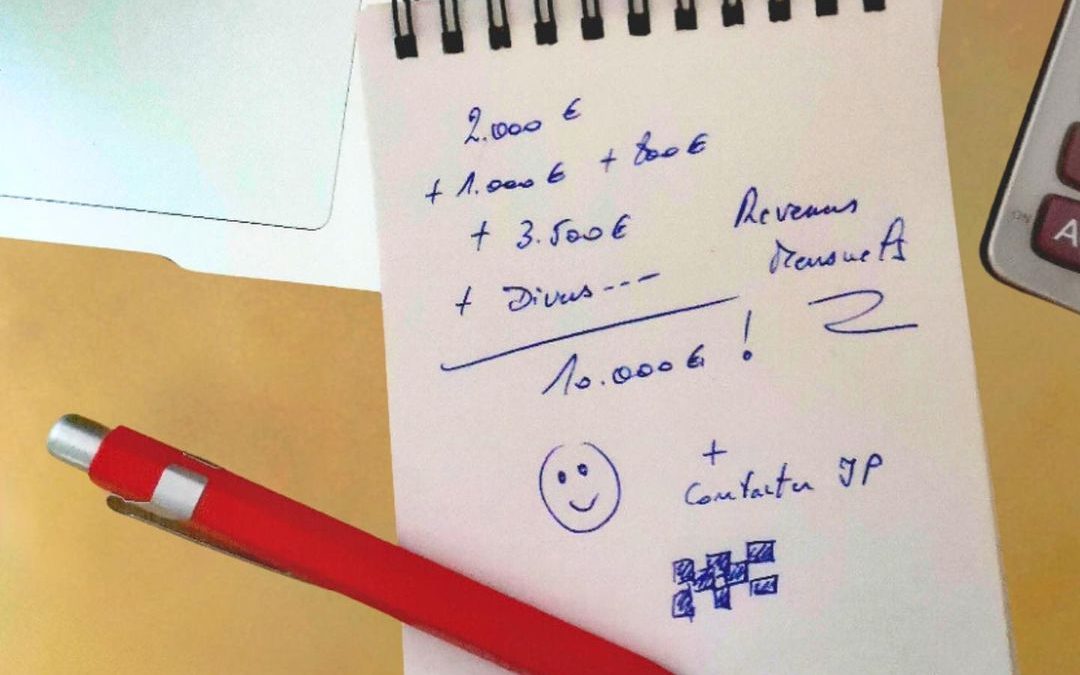 2.000 €
+ 1.000 € + 800 €
+ 3.500 €
+ Divers ---
Revenus
Mensuels
10.000 € !
+
Contacter JP
ON
A